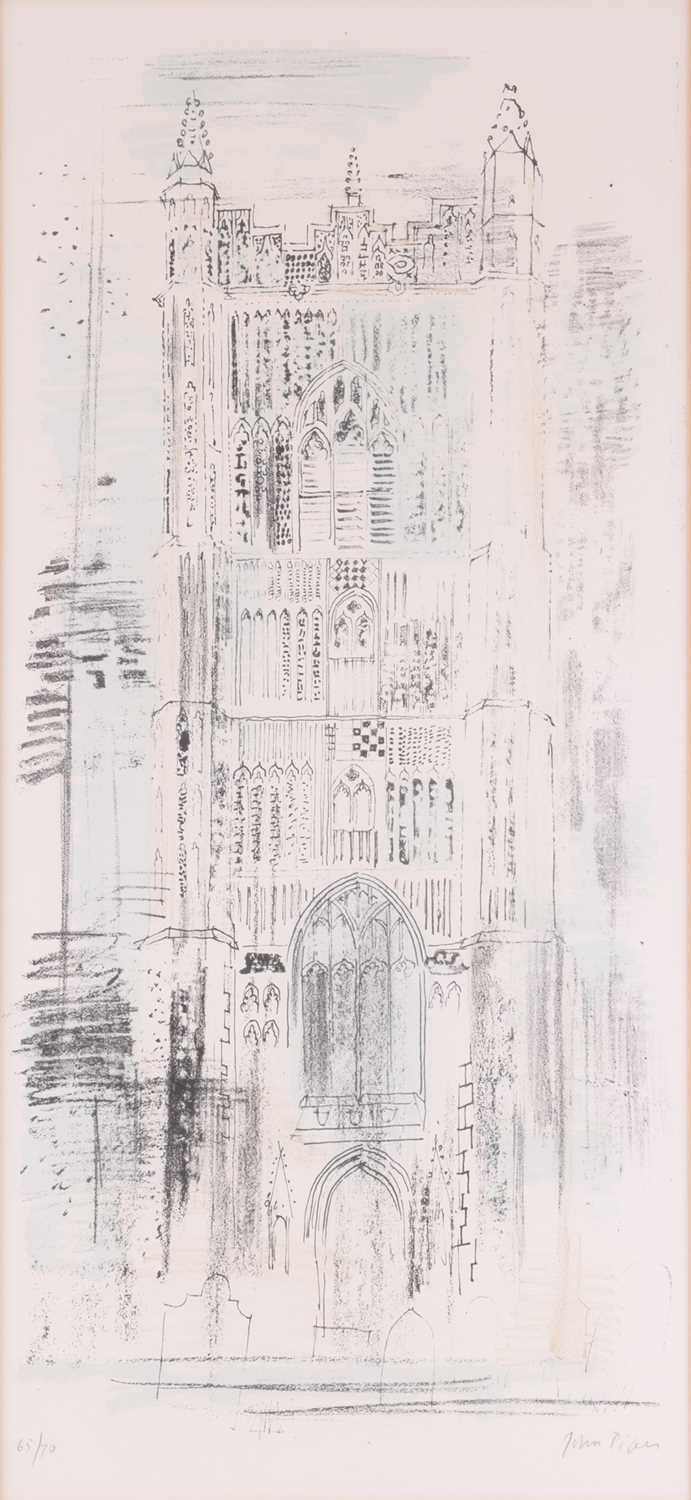 65/70
John Piper